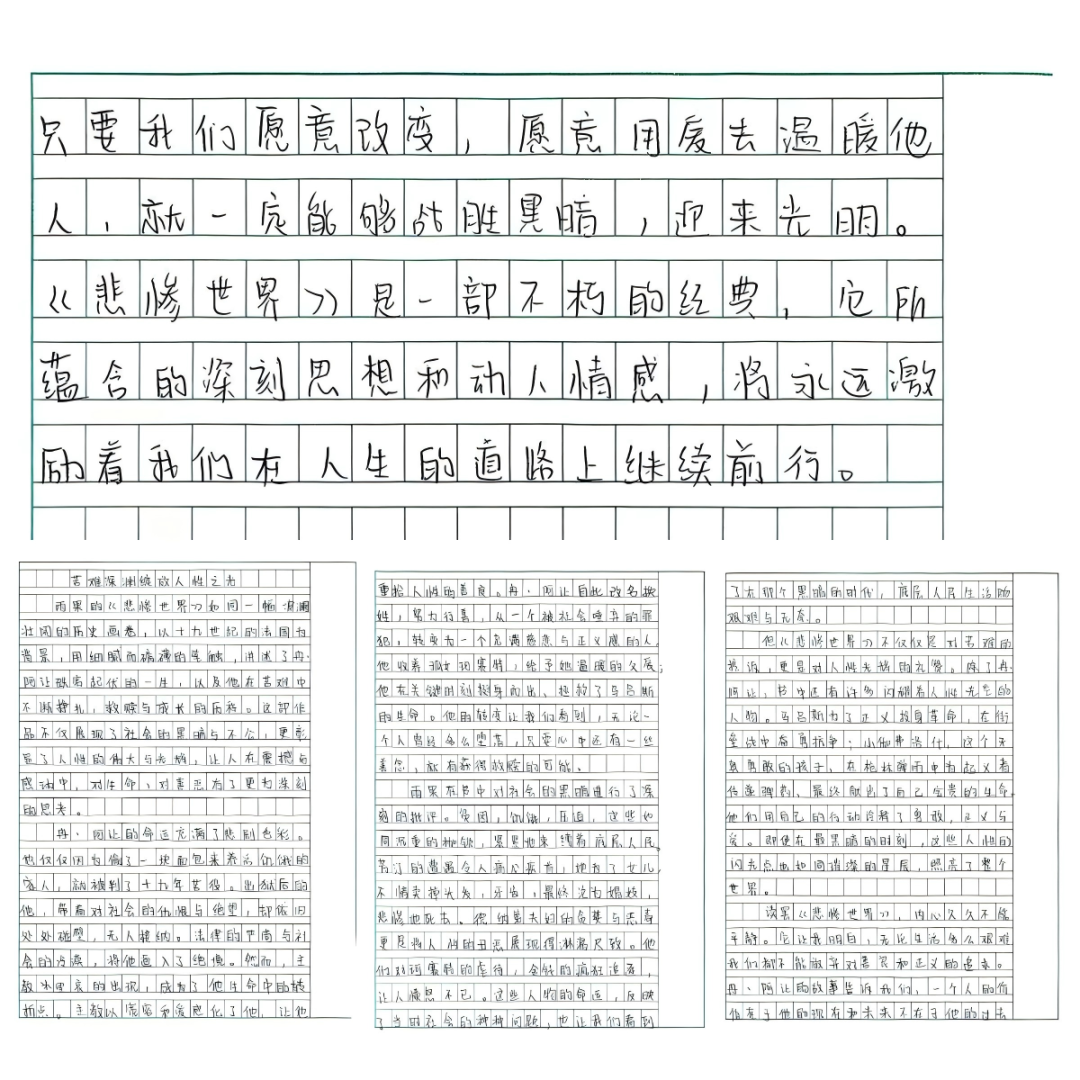 只要我们愿意改变，愿意用爱去温暖他
人，就一定能够战胜黑暗，迎来光明。
《悲惨世界》是一部不朽的经典，它所
蕴含的深刻思想和动人情感，将永远激
励着我们在人生的道路上继续前行。
苦难深渊绽放人性之光
雨果的《悲惨世界》如同一幅波澜
壮阔的历史画卷，以十九世纪的法国为
背景，用细腻而磅礴的笔触，讲述了冉·
阿让跌宕起伏的一生，以及他在苦难中
不断挣扎，救赎与成长的历程。这部作
品不仅展现了社会的黑暗与不公，更彰
显了人性的伟大与光辉，让人在震撼与
感动中，对生命、对善恶有了更为深刻
的思考。
冉·阿让的命运充满了悲剧色彩。
他仅仅因为偷了一块面包来养活饥饿的
家人，就被判了十九年苦役。出狱后的
他，带着对社会的仇恨与绝望，却依旧
处处碰壁，无人接纳。法律的严苛与社
会的冷漠，将他逼入了绝境。然而，主
教米里哀的出现，成为了他生命中的转
折点。主教以宽容和爱感化了他，让他
重拾人性的善良。冉·阿让自此改名换
姓，努力行善，从一个被社会唾弃的罪
犯，转变为一个充满慈悲与正义感的人。
他收养孤女珂赛特，给予她温暖的父爱；
他在关键时刻挺身而出、拯救了马吕斯
的生命。他的转变让我们看到，无论一
个人曾经多么堕落，只要心中还有一些
善念，就有获得救赎的可能。
雨果在书中对社会的黑暗进行了深
刻的批评。贫困，饥饿，压迫，这些如
同沉重的枷锁，紧紧地束缚着底层人民。
芳汀的遭遇令人痛心疾首，她为了女儿，
不惜卖掉头发，牙齿，最终沦为娼妓，
悲惨地死去。德纳第夫妇的贪婪与恶毒
更是将人性的丑恶展现得淋漓尽致。他
们对珂赛特的虐待，金钱的疯狂追逐，
让人愤怒不已。这些人物的命运，反映
了当时社会的种种问题，也让我们看到
了在那个黑暗的时代，底层人民生活的
艰难与无奈。
但《悲惨世界》不仅仅是对苦难的
控诉，更是对人性光辉的礼赞。除了冉·
阿让，书中还有许多闪耀着人性光芒的
人物。马吕斯为了正义投身革命，在街
垒战中奋勇抗争；小伽弗洛什，这个天
真勇敢的孩子，在枪林弹雨中为起义者
传递弹药，最终献出了自己宝贵的生命。
他们用自己的行动诠释了勇敢，正义与
爱。即使在最黑暗的时刻，这些人性的
闪光点也如同璀璨的星辰，照亮了整个
世界。
读罢《悲惨世界》，内心久久不能
平静。它让我明白，无论生活多么艰难
我们都不能放弃对善良和正义的追求。
冉·阿让的故事告诉我们，一个人的价
值在于他的现在和未来不在于他的过去